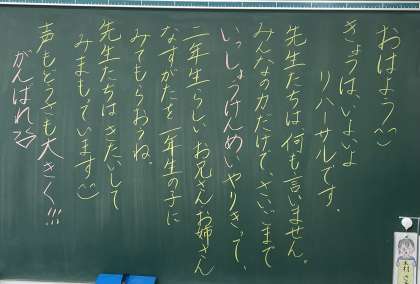 おはよう
きょうは、いよいよ
リハーサルです。
先生たちは何も言いません。
みんなの力だけで、さいごまで
いっしょうけんめいやりきって、
二年生らしいお兄さんお姉さん
なすがたを一年生の子に
みてもらおうね。
先生たちはきたいして
みまもっています
声もどうさも大きく!!!
がんばれ